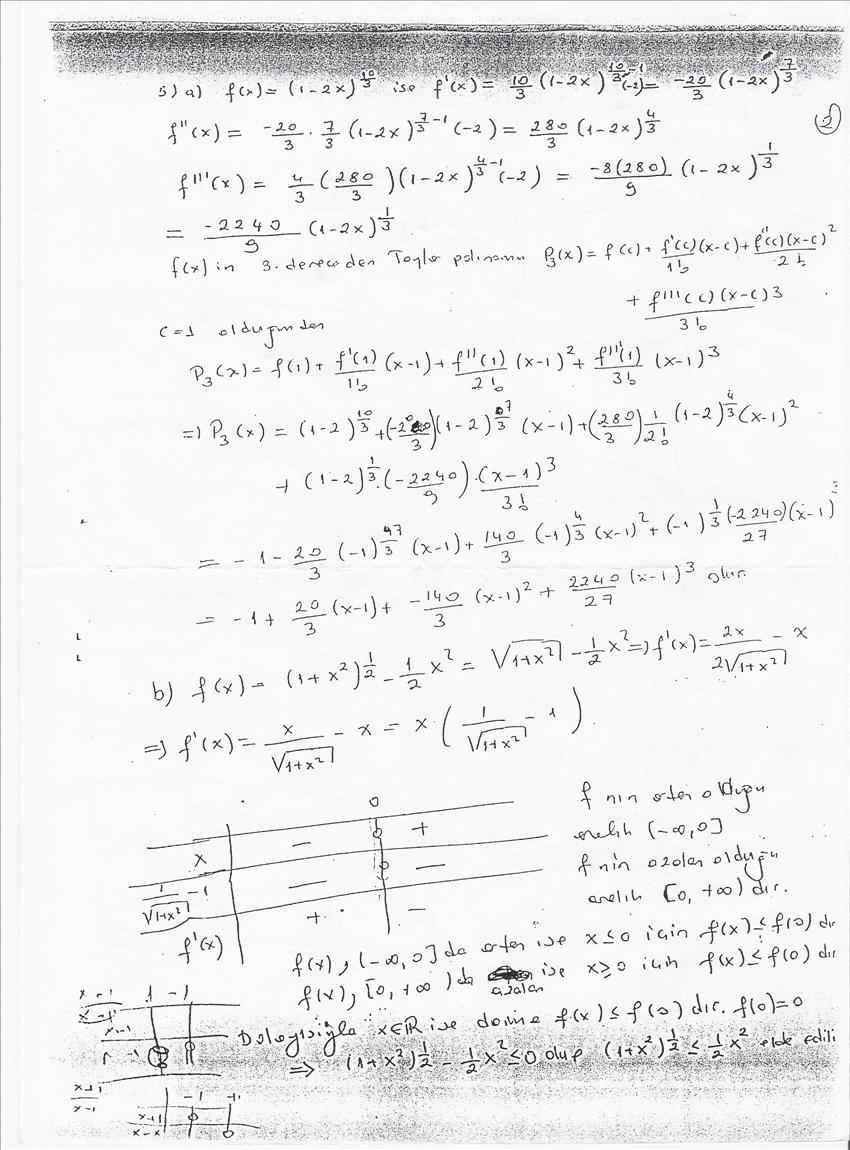 5) a) f(x) = (1-2x)^{10/3} ise f'(x) = 10/3 (1-2x)^{10/3 -1} (-2) = -20/3 (1-2x)^{7/3}
f''(x) = -20/3 · 7/3 (1-2x)^{7/3 -1} (-2) = 280/3 (1-2x)^{4/3}
2
f'''(x) = 4/3 (280/3) (1-2x)^{4/3 -1} (-2) = -8(280)/9 (1-2x)^{1/3}
= -2240/9 (1-2x)^{1/3}
f(x) in 3. dereceden Taylor polinomu P₃(x) = f(c) + f'(c)(x-c)/1! + f''(c)(x-c)²/2!
+ f'''(c)(x-c)3/3!
c=1 olduğundan
P₃(x) = f(1) + f'(1)/1! (x-1) + f''(1)/2! (x-1)² + f'''(1)/3! (x-1)³
=) P₃(x) = (1-2)^{10/3} + (-20/3)(1-2)^{7/3} (x-1) + (280/3) 1/2! (1-2)^{4/3} (x-1)²
+ (1-2)^{1/3} · (-2240/9) · (x-1)³/3!
= -1 - 20/3 (-1)^{7/3} (x-1) + 140/3 (-1)^{4/3} (x-1)² + (-1)^{1/3} (-2240)(x-1)³/27
= -1 + 20/3 (x-1) + -140/3 (x-1)² + 2240/27 (x-1)³ olur.
b) f(x) = (1+x²)^{1/2} - 1/2 x² = √(1+x²) - 1/2 x² =) f'(x) = 2x/2√(1+x²) - x
=) f'(x) = x/√(1+x²) - x = x · (1/√(1+x²) - 1).
0
x - 0 +
1/√(1+x²) - 1 - 0 -
f'(x) + -
f nin artan olduğu
aralık (-∞, 0]
f nin azalan olduğu
aralık [0, +∞) dır.
f(x), (-∞, 0] da artan ise x≤0 için f(x) ≤ f(0) dır
f(x), [0, +∞) da azalan ise x≥0 için f(x) ≤ f(0) dır
Dolayısıyla x∈ℝ ise daima f(x) ≤ f(0) dır. f(0)=0
⇒ (1+x²)^{1/2} - 1/2 x² ≤ 0 olup (1+x²)^{1/2} ≤ 1/2 x² elde edili
x+1/x-1
x+1
x-1